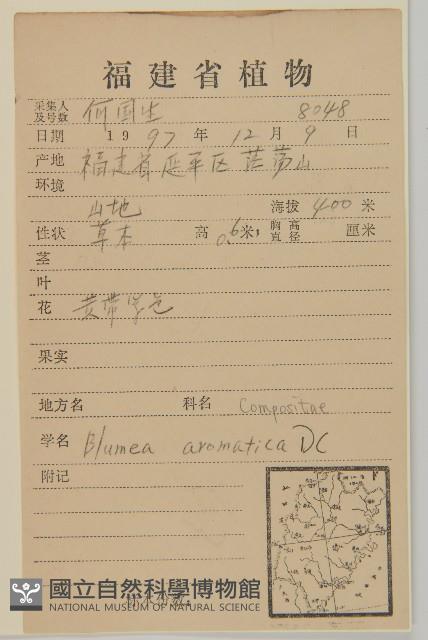 福建省植物
采集人及号数 何国生 8048
日期 1997年12月9日
产地 福建省延平区茫荡山
环境
山地 海拔 400 米
性状 草本 高 0.6米; 胸高直径 厘米
茎
叶
花 黄带紫色
果实
地方名 科名 Compositae
学名 Blumea aromatica DC
附记
國立自然科學博物館
NATIONAL MUSEUM OF NATURAL SCIENCE